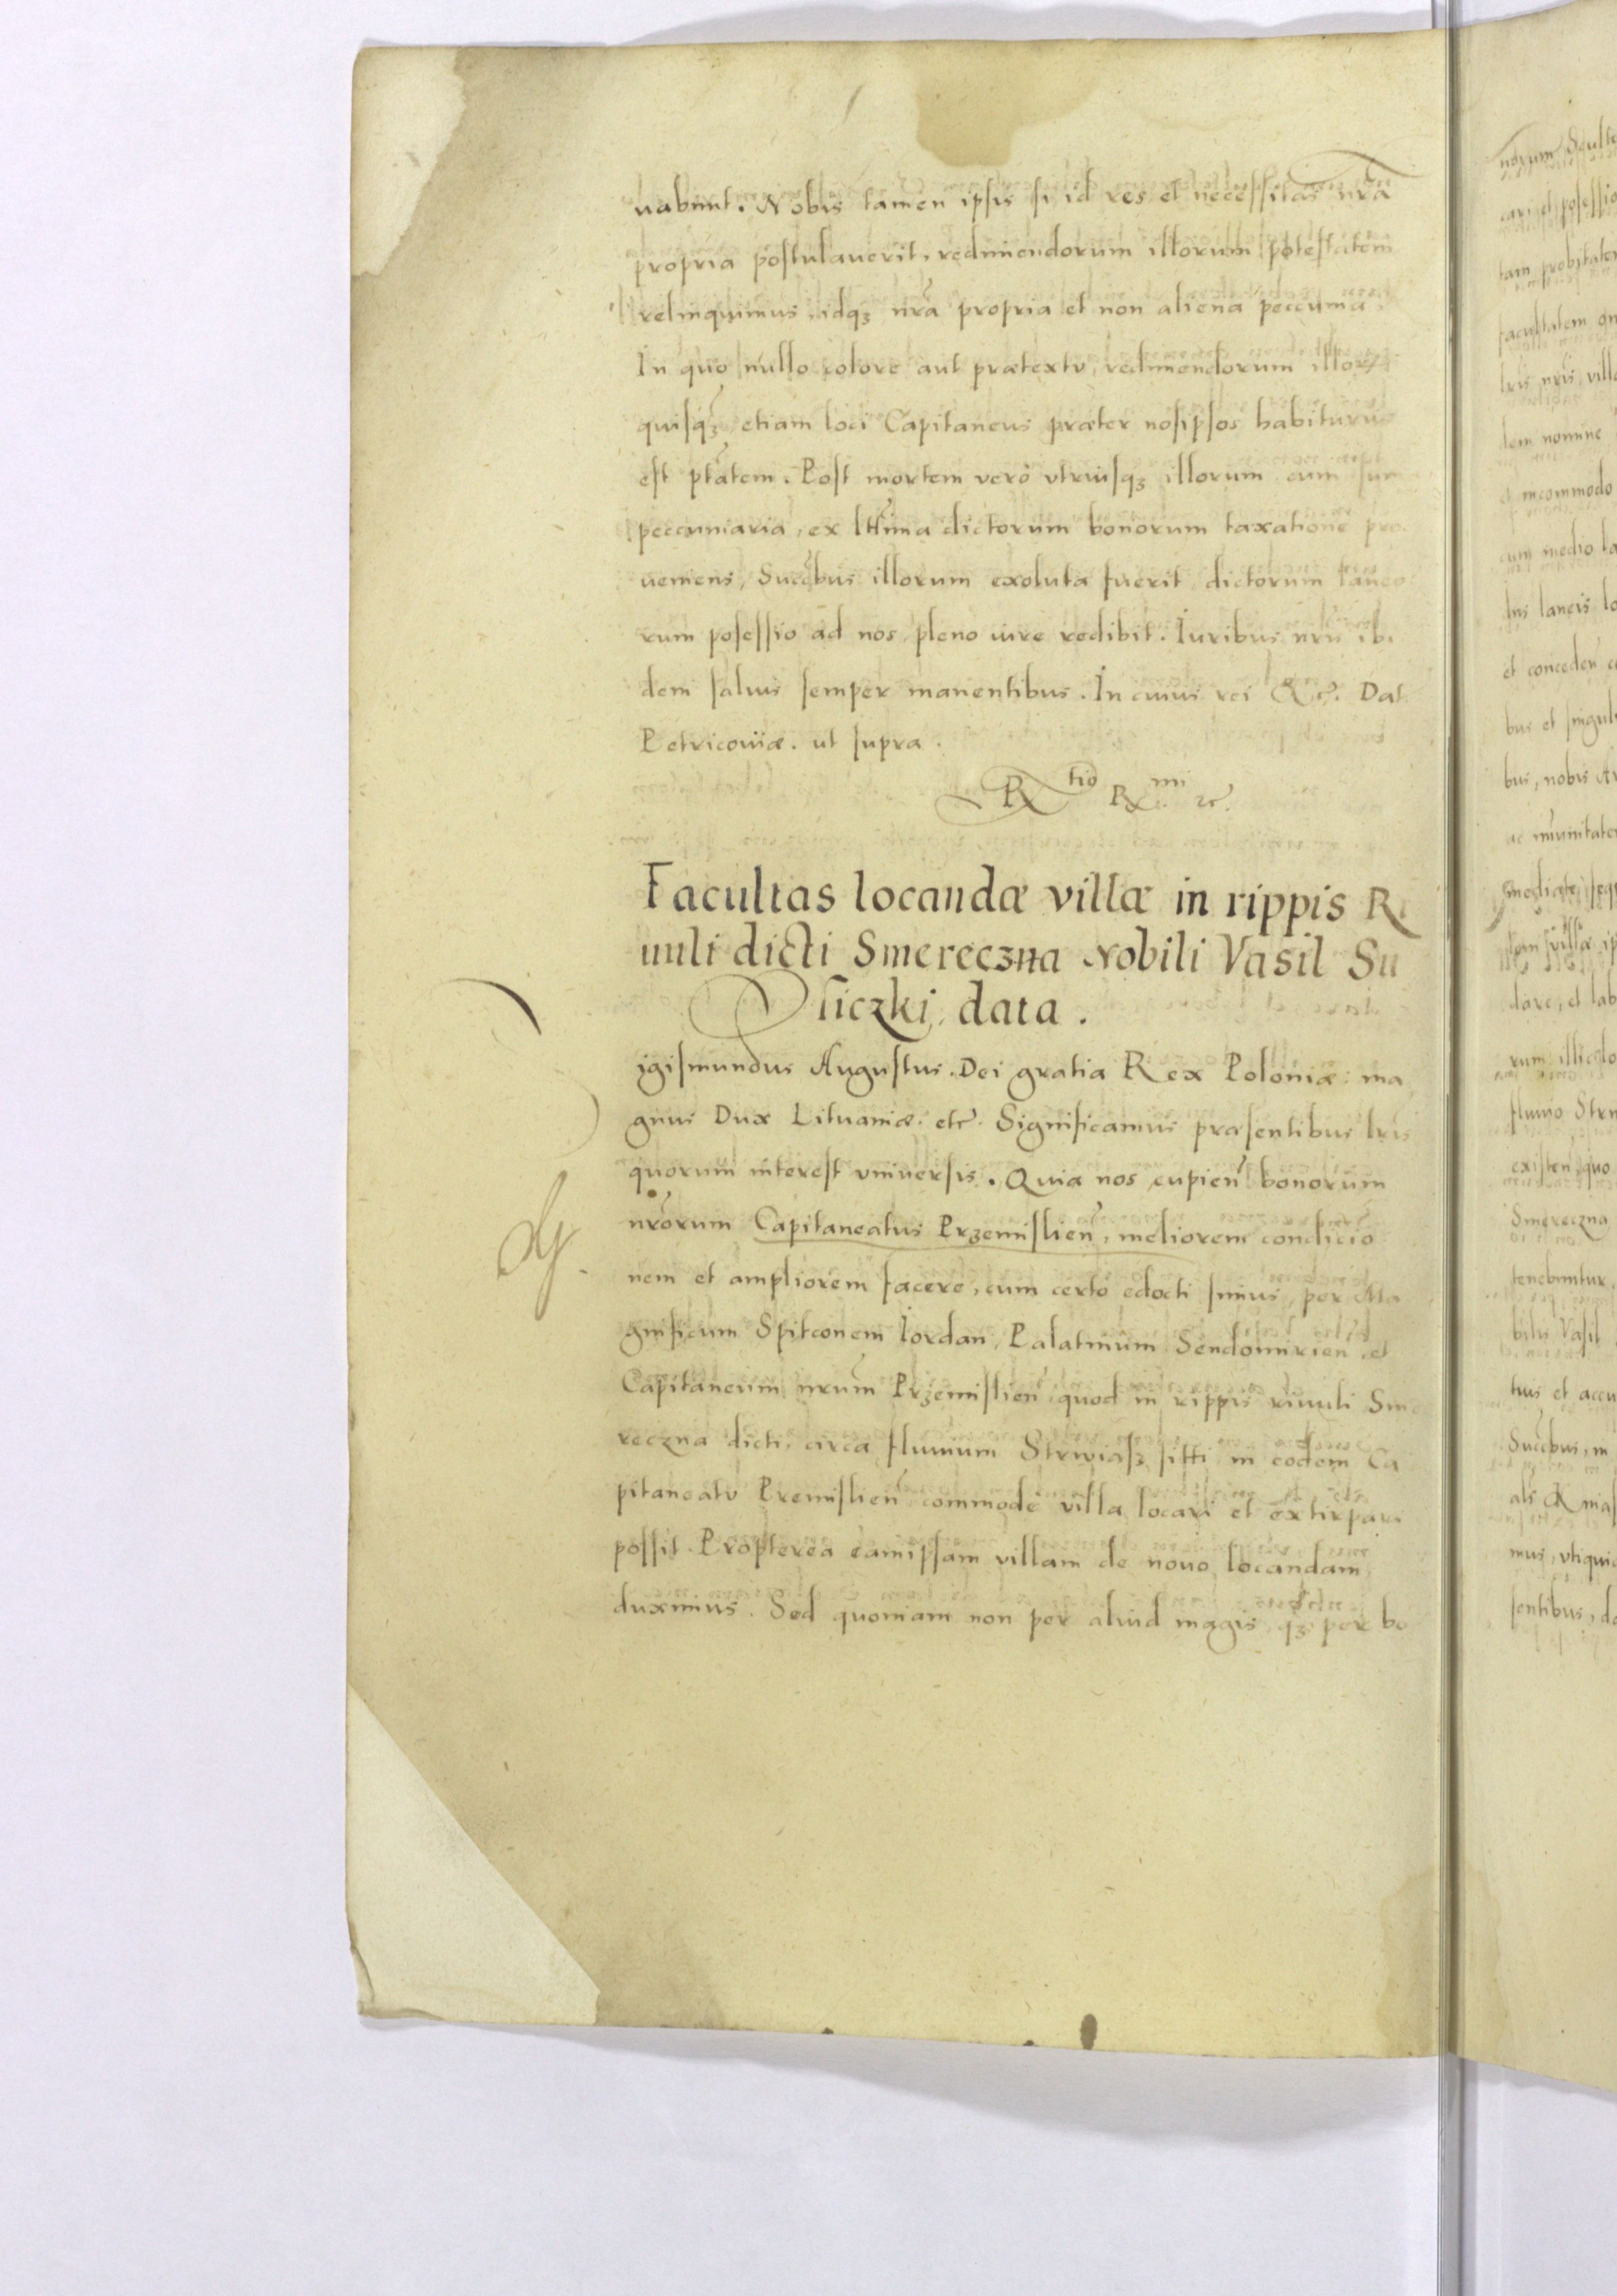 uabunt. Nobis tamen ipsis si id res et necessitas nr̃a
propria postulauerit, redimendorum illorum potestatem
relinquimus, idqꝫ nr̃a propria et non aliena peccunia.
In quo nullo colore aut prætextv, redimendorum illorꝝ
quisqꝫ etiam loci Capitaneus præter nosipsos habiturus
est ptãtem. Post mortem verò vtriusqꝫ illorum cum sum
peccuniaria, ex lttĩma dictorum bonorum taxatione pro
ueniens, Succ̃bus illorum exoluta fuerit, dictorum laneo
rum posessio ad nos pleno iure redibit. Iuribus nr̃is ibi
dem saluis semper manentibus. In cuius rei &c. Dat
Petricouiæ. ut supra.
Rtio R mi &c.
Facultas locandæ villæ in rippis Ri
uuli dicti Smereczna Nobili Vasil Su
siczki, data.
igismundus Augustus. Dei gratia Rex Poloniæ. ma
gnus Dux Lituaniæ. etc. Significamus præsentibus lr̃is
quorum interest vniuersis. Quia nos cupien̄ bonorum
nrõrum Capitaneatus Przemislien̄, meliorem condicio
nem et ampliorem facere, cum certo edocti simus, per Ma
gnificum Spitconem Iordan, Palatinum Sendomirien̄ et
Capitaneum nrũm Przemislien̄ quod in rippis riuuli Sme
reczna dicti, circa fluuium Strwiaſz sitti in eodem Ca
pitaneatv Premislien̄ commode villa locari et extirpari
possit. Propterea eamipsam villam de nouo locandam
duximus. Sed quoniam non per aliud magis qꝫ per bo
norum Sculte
cari et posessio
tam probitatem
facultatem
lr̃is nr̃is, villa
dem nomine
et incommodo
cum medio la
lus laneis lo
et conceden̄
bus et singuli
bus, nobis
ac immunitatem
mediate, seq
tem villæ ip
dare, et lab
rum illic lo
fluuio Strw
existen̄, quo
Smereczna
tenebuntur,
bilis Vasil
tus et accu
Succ̃bus, in
als Knias
mus, vtiqui
sentibus, da